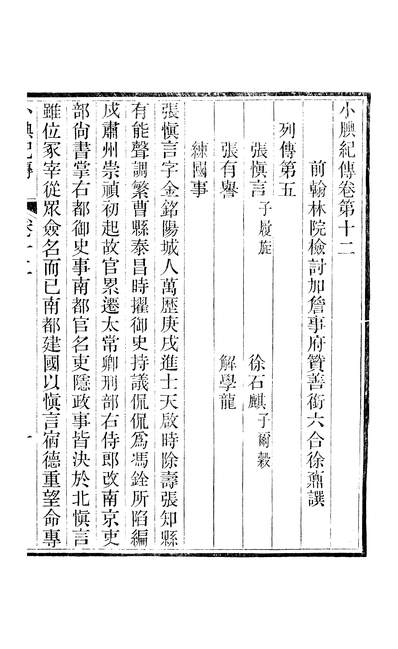 小腆紀傳卷第十二
前翰林院檢討加詹事府贊善銜六合徐鼒譔
列傳第五
張慎言子履旋 徐石麒子爾穀
張有譽 解學龍
練國事
張慎言字金銘陽城人萬歷庚戌進士天啟時除壽張知縣
有能聲調繁曹縣泰昌時擢御史持議侃侃為馮銓所陷編
戍肅州崇禎初起故官累遷太常卿刑部右侍郎改南京吏
部尚書掌右都御史事南都官名吏隱政事皆決於北慎言
雖位冢宰從眾僉名而已南都建國以慎言宿德重望命專
小腆紀傳 卷十二 一